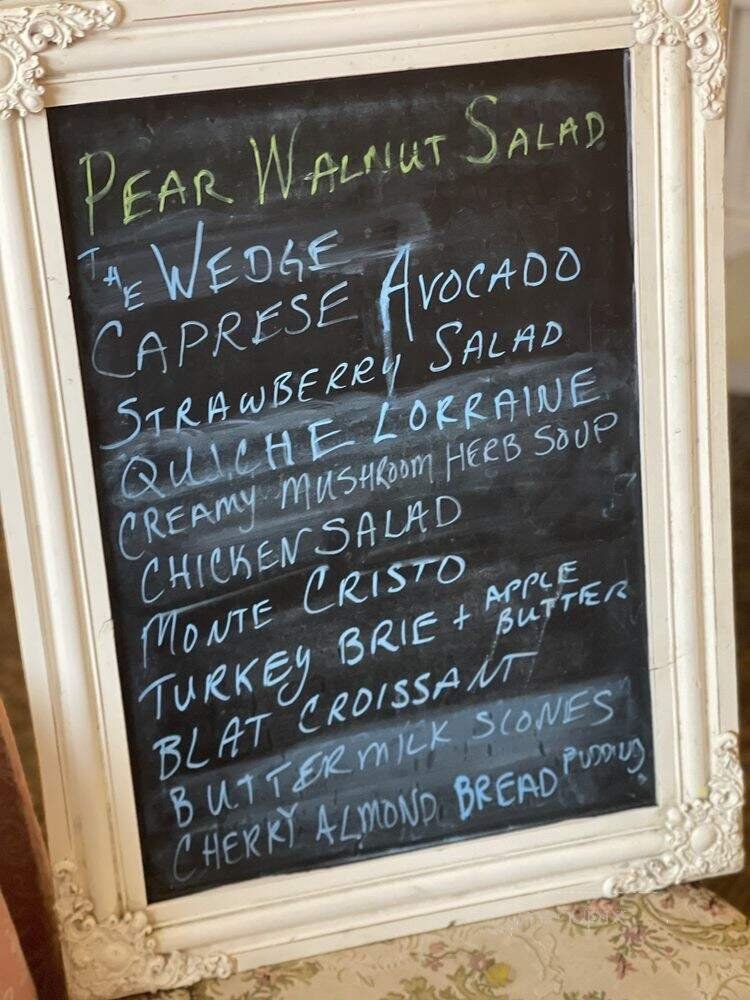 PEAR WALNUT SALAD
THE WEDGE
CAPRESE AVOCADO
STRAWBERRY SALAD
QUICHE LORRAINE
CREAMY MUSHROOM HERB SOUP
CHICKEN SALAD
MONTE CRISTO
TURKEY BRIE + APPLE BUTTER
BLAT CROISSANT
BUTTERMILK SCONES
CHERRY ALMOND BREAD PUDDING